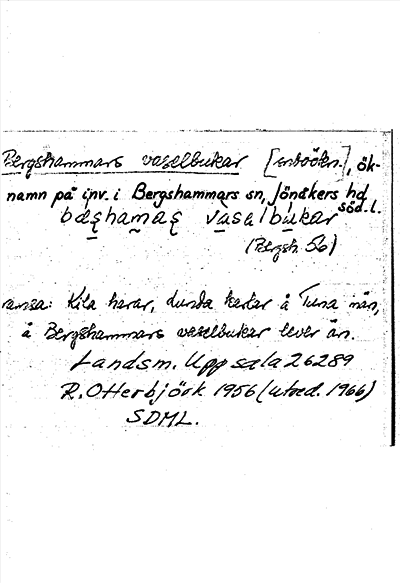 Bergshammars vaselbukar [inboökn.], ök-
namn på inv. i Bergshammars sn, Jönåkers hd,
söd. l.
(Bergsh. 56)
ramsa: Kila harar, Lunda karlar å Tuna män,
å Bergshammars vaselbukar lever än.
Landsm. Uppsala 26289
R. Otterbjörk 1956 (utred. 1966)
SDML.